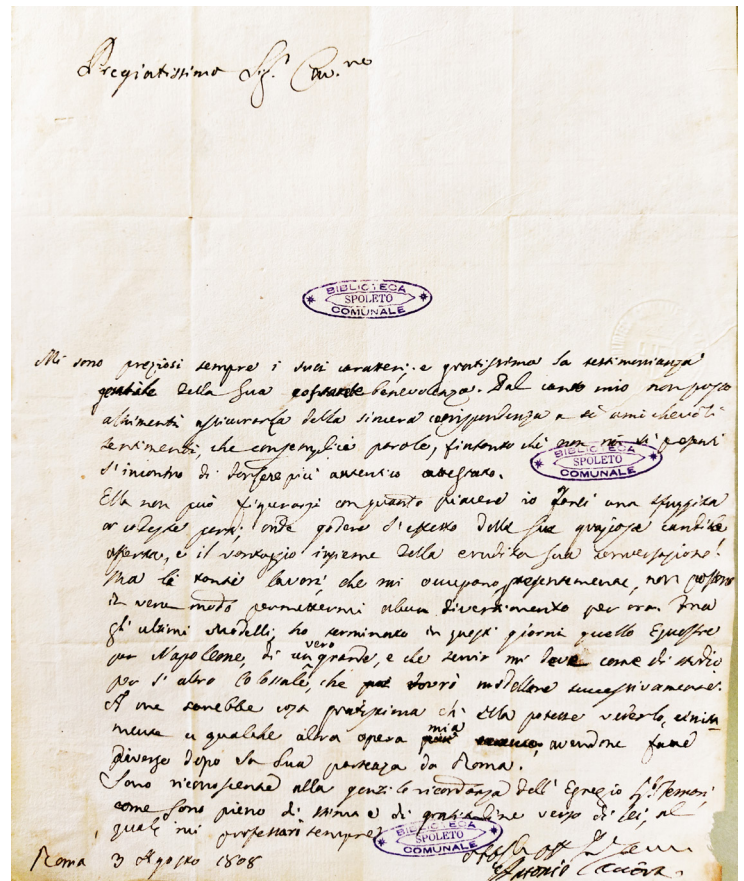 Pregiatissimo Sig.r Cav.re
BIBLIOTECA
SPOLETO
COMUNALE
Mi sono preziosi sempre i suoi caratteri, e gratissima la testimonianza
della Sua benevolenza. Dal canto mio non posso
altrimenti assicurarla della sincera corrispondenza a sì amichevoli
sentimenti, che con semplici parole, fintanto che non mi si presenti
l'incontro di più autentico attestato.
BIBLIOTECA
SPOLETO
COMUNALE
Ella non può figurarsi con quanto piacere io farei una
a codeste parti, onde godere l'effetto della sua graziosa
offerta, e il vantaggio insieme della erudita sua conversazione!
Ma li tanti lavori, che mi occupano presentemente, non possono
in verun modo permettermi alcun divertimento per ora. Fra
gl'ultimi Modelli, ho terminato in questi giorni quello Equestre
per Napoleone, di un vero grande, e che servir mi deve come di studio
per l'altro Colossale, che dovrò modellare successivamente.
A me sarebbe cosa gratissima ch'Ella potesse vederlo, unita
mente a qualche altra opera mia avendone fatte
diverse dopo la Sua partenza da Roma.
Sono riconoscente alla gentile ricordanza dell'Egregio
come sono pieno di stima e di gratitudine verso di Lei, al
quale mi professerò sempre
BIBLIOTECA
SPOLETO
COMUNALE
Roma 3 Agosto 1808
Antonio Canova